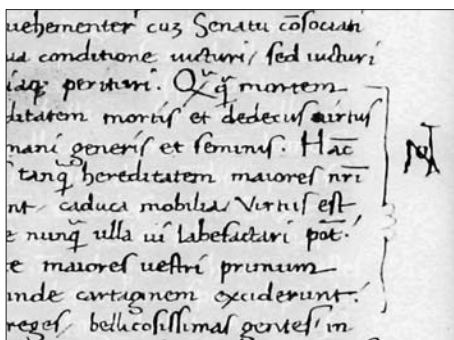 uehementer cuz Senatu cōsociati
conditione uicturi, sed uicturi
perituri. Qūq̄ mortem
ditatem mortis et dedecus uirtus
mani generis et seminis. Hāc
tanq̄ hereditatem maiores nr̄i
nt, caduca mobilia, Virtus est
e nunq̄ ulla ui labefactari pōt.
e maiores uestri primum
inde cartaginem exciderunt.
reges, bellicosissimas gentes in